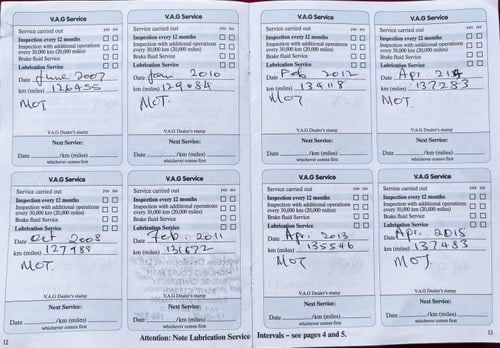 V.A.G Service
Service carried out yes no
Inspection every 12 months
Inspection with additional operations
every 30,000 km (20,000 miles)
Brake fluid Service
Lubrication Service
Date June 2007
km (miles) 126455
MOT
V.A.G Dealer's stamp
Next Service:
Date /km (miles)
whichever comes first
V.A.G Service
Service carried out yes no
Inspection every 12 months
Inspection with additional operations
every 30,000 km (20,000 miles)
Brake fluid Service
Lubrication Service
Date Jan 2010
km (miles) 129084
MOT.
V.A.G Dealer's stamp
Next Service:
Date /km (miles)
whichever comes first
V.A.G Service
Service carried out yes no
Inspection every 12 months
Inspection with additional operations
every 30,000 km (20,000 miles)
Brake fluid Service
Lubrication Service
Date Oct 2008
km (miles) 127988
MOT.
V.A.G Dealer's stamp
Next Service:
Date /km (miles)
whichever comes first
V.A.G Service
Service carried out yes no
Inspection every 12 months
Inspection with additional operations
every 30,000 km (20,000 miles)
Brake fluid Service
Lubrication Service
Date Feb. 2011
km (miles) 131672
MOT.
V.A.G Dealer's stamp
Next Service:
Date /km (miles)
whichever comes first
12
Attention: Note Lubrication Service
V.A.G Service
Service carried out yes no
Inspection every 12 months
Inspection with additional operations
every 30,000 km (20,000 miles)
Brake fluid Service
Lubrication Service
Date Feb 2012
km (miles) 134118
MOT
V.A.G Dealer's stamp
Next Service:
Date /km (miles)
whichever comes first
V.A.G Service
Service carried out yes no
Inspection every 12 months
Inspection with additional operations
every 30,000 km (20,000 miles)
Brake fluid Service
Lubrication Service
Date Apr
km (miles) 137283
MOT.
V.A.G Dealer's stamp
Next Service:
Date /km (miles)
whichever comes first
V.A.G Service
Service carried out yes no
Inspection every 12 months
Inspection with additional operations
every 30,000 km (20,000 miles)
Brake fluid Service
Lubrication Service
Date Apr. 2013
km (miles) 135546
MOT
V.A.G Dealer's stamp
Next Service:
Date /km (miles)
whichever comes first
V.A.G Service
Service carried out yes no
Inspection every 12 months
Inspection with additional operations
every 30,000 km (20,000 miles)
Brake fluid Service
Lubrication Service
Date Apr. 2015
km (miles) 137483
MOT.
V.A.G Dealer's stamp
Next Service:
Date /km (miles)
whichever comes first
Intervals – see pages 4 and 5.
13